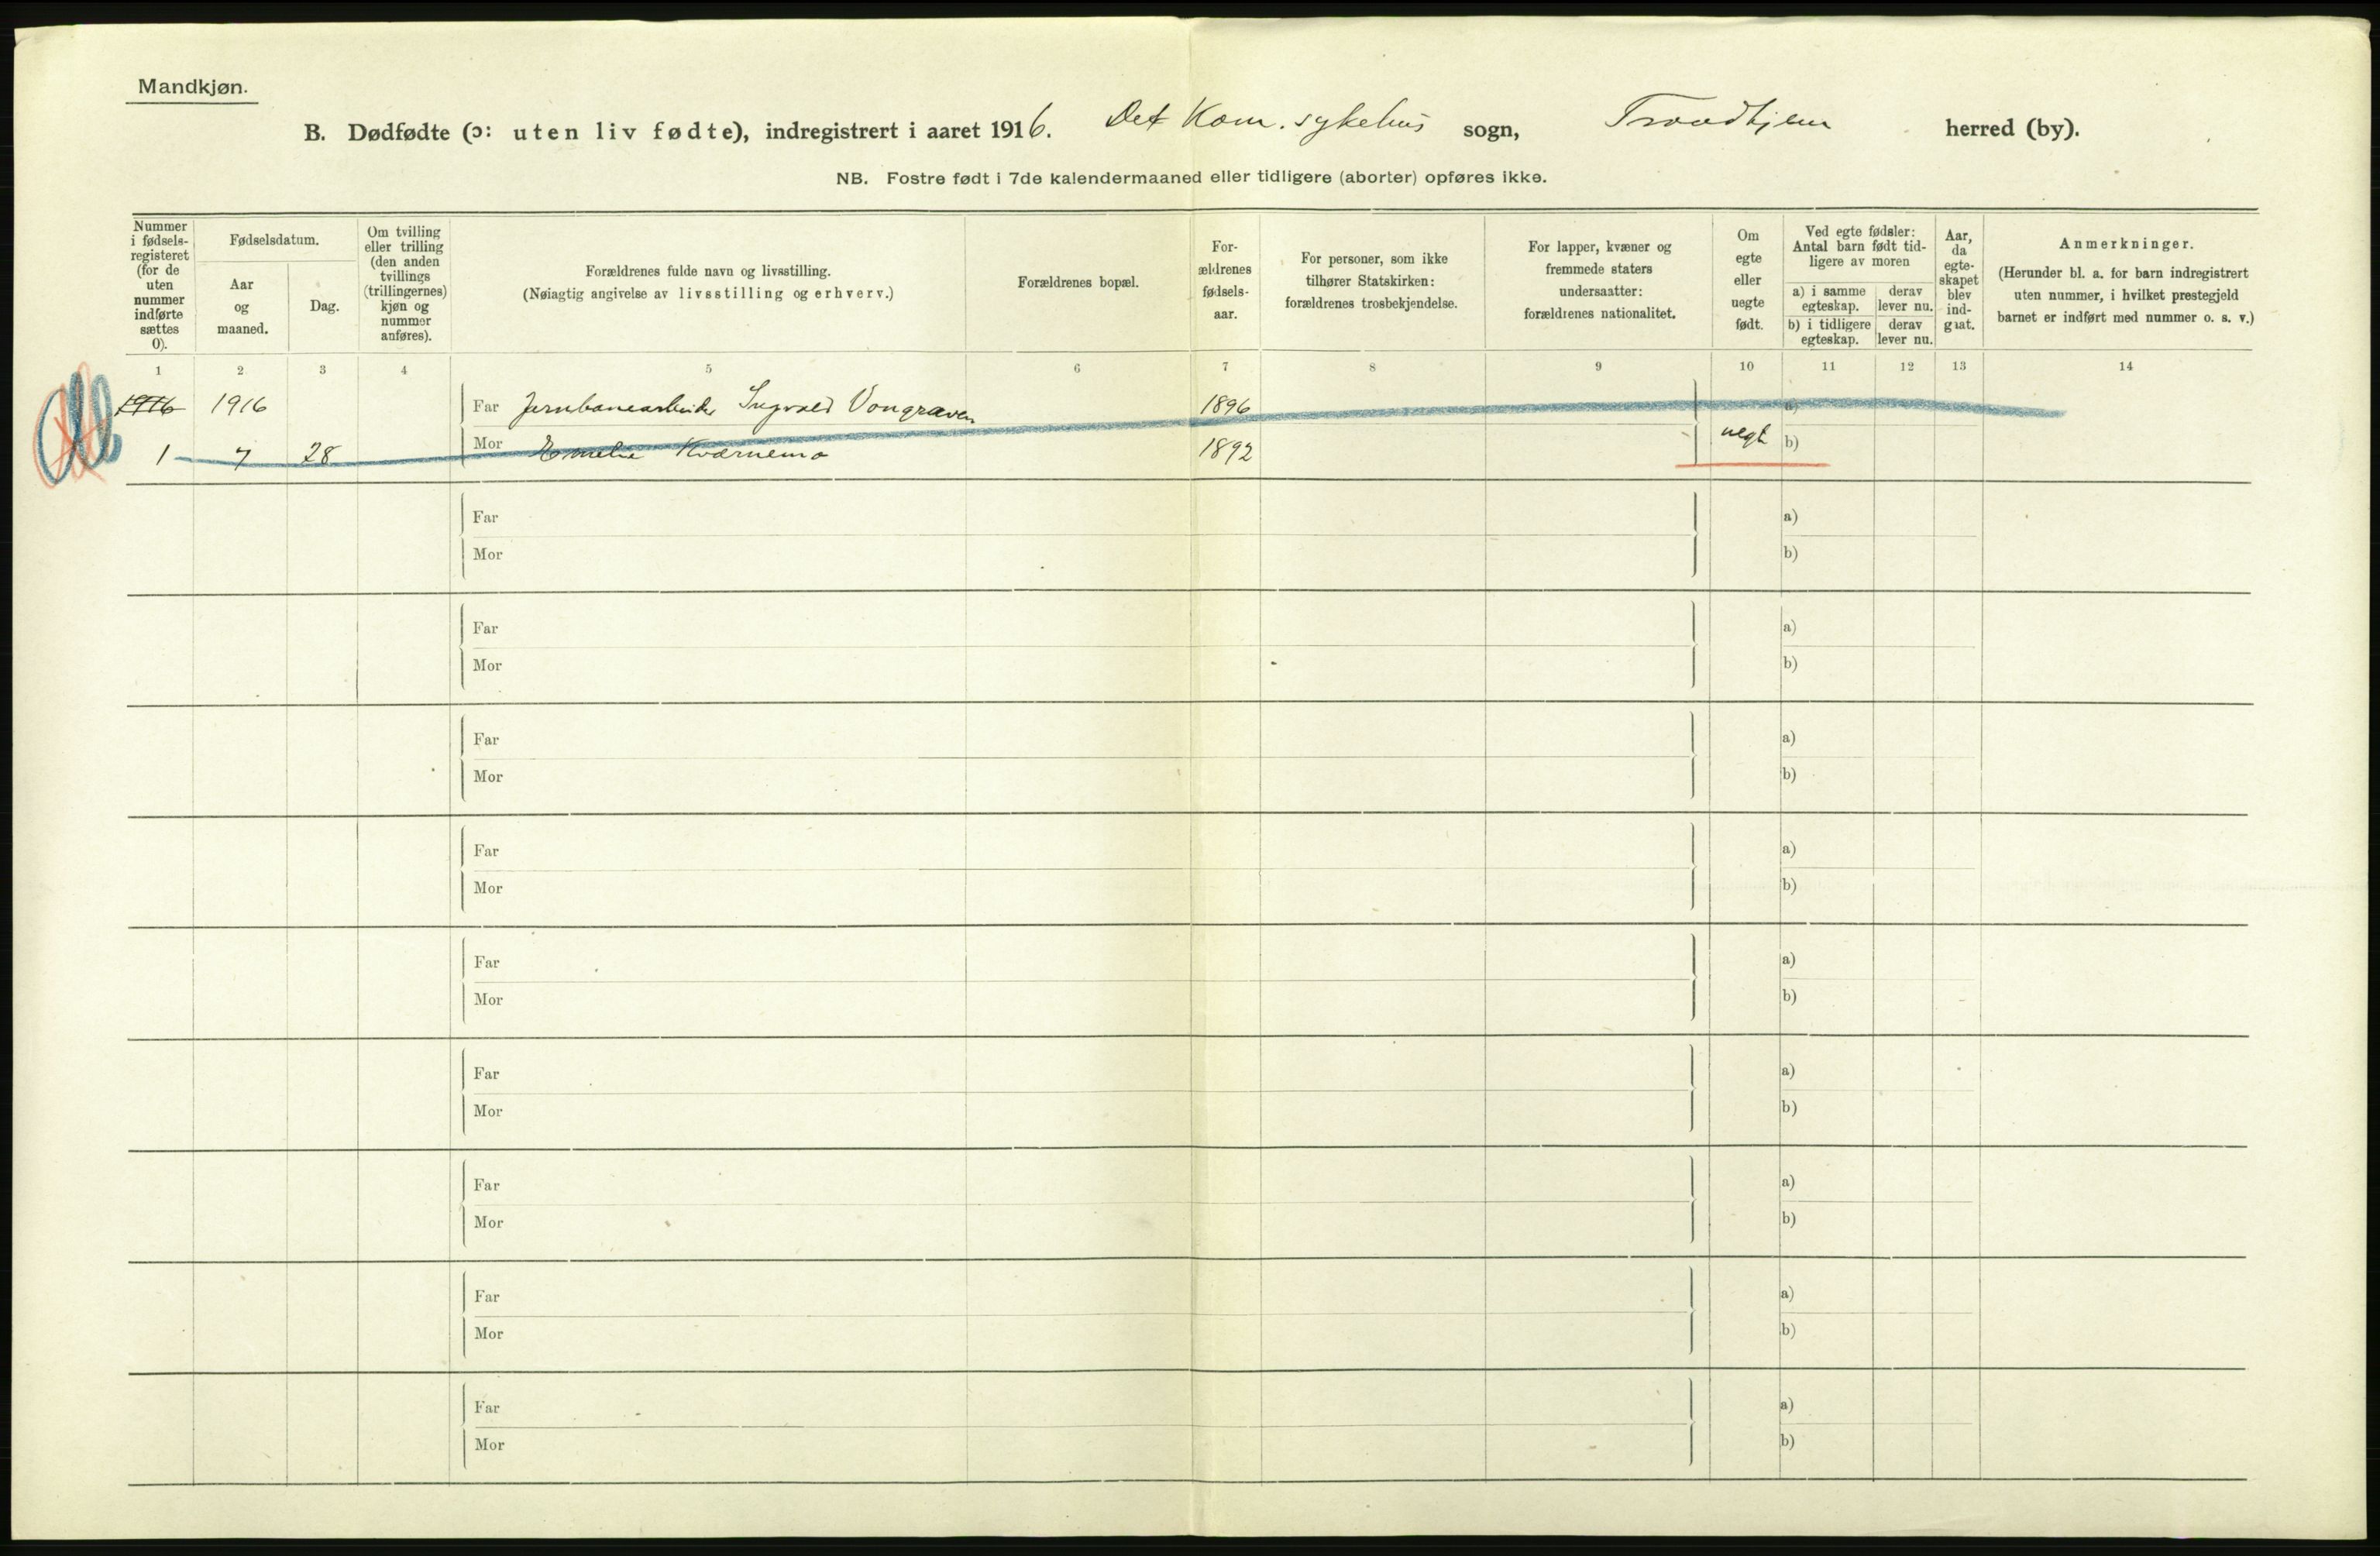 Mandkjøn.
B. Dødfødte (ɔ: uten liv fødte), indregistrert i aaret 1916. Det Kom. sykehus sogn, Trondhjem herred (by).
NB. Fostre født i 7de kalendermaaned eller tidligere (aborter) opføres ikke.
Nummer i fødsels-registeret (for de uten nummer indførte sættes 0).
Fødselsdatum.
Aar og maaned.
Dag.
Om tvilling eller trilling (den anden tvillings (trillingernes) kjøn og nummer anføres).
Forældrenes fulde navn og livsstilling.
(Nøiagtig angivelse av livsstilling og erhverv.)
Forældrenes bopæl.
For-ældrenes fødsels-aar.
For personer, som ikke tilhører Statskirken: forældrenes trosbekjendelse.
For lapper, kvæner og fremmede staters undersaatter: forældrenes nationalitet.
Om egte eller uegte født.
Ved egte fødsler: Antal barn født tid-ligere av moren
a) i samme egteskap.
derav lever nu.
b) i tidligere egteskap.
derav lever nu.
Aar, da egte-skapet blev ind-gaat.
Anmerkninger.
(Herunder bl. a. for barn indregistrert uten nummer, i hvilket prestegjeld barnet er indført med nummer o. s. v.)
1 2 3 4 5 6 7 8 9 10 11 12 13 14
1916 1916 Far Jernbanearbeider Ingvald Vongraven 1896 a)
1 7 28 Mor Emelie Kværnemo 1892 uegte b)
Far a)
Mor b)
Far a)
Mor b)
Far a)
Mor b)
Far a)
Mor b)
Far a)
Mor b)
Far a)
Mor b)
Far a)
Mor b)
Far a)
Mor b)
Far a)
Mor b)